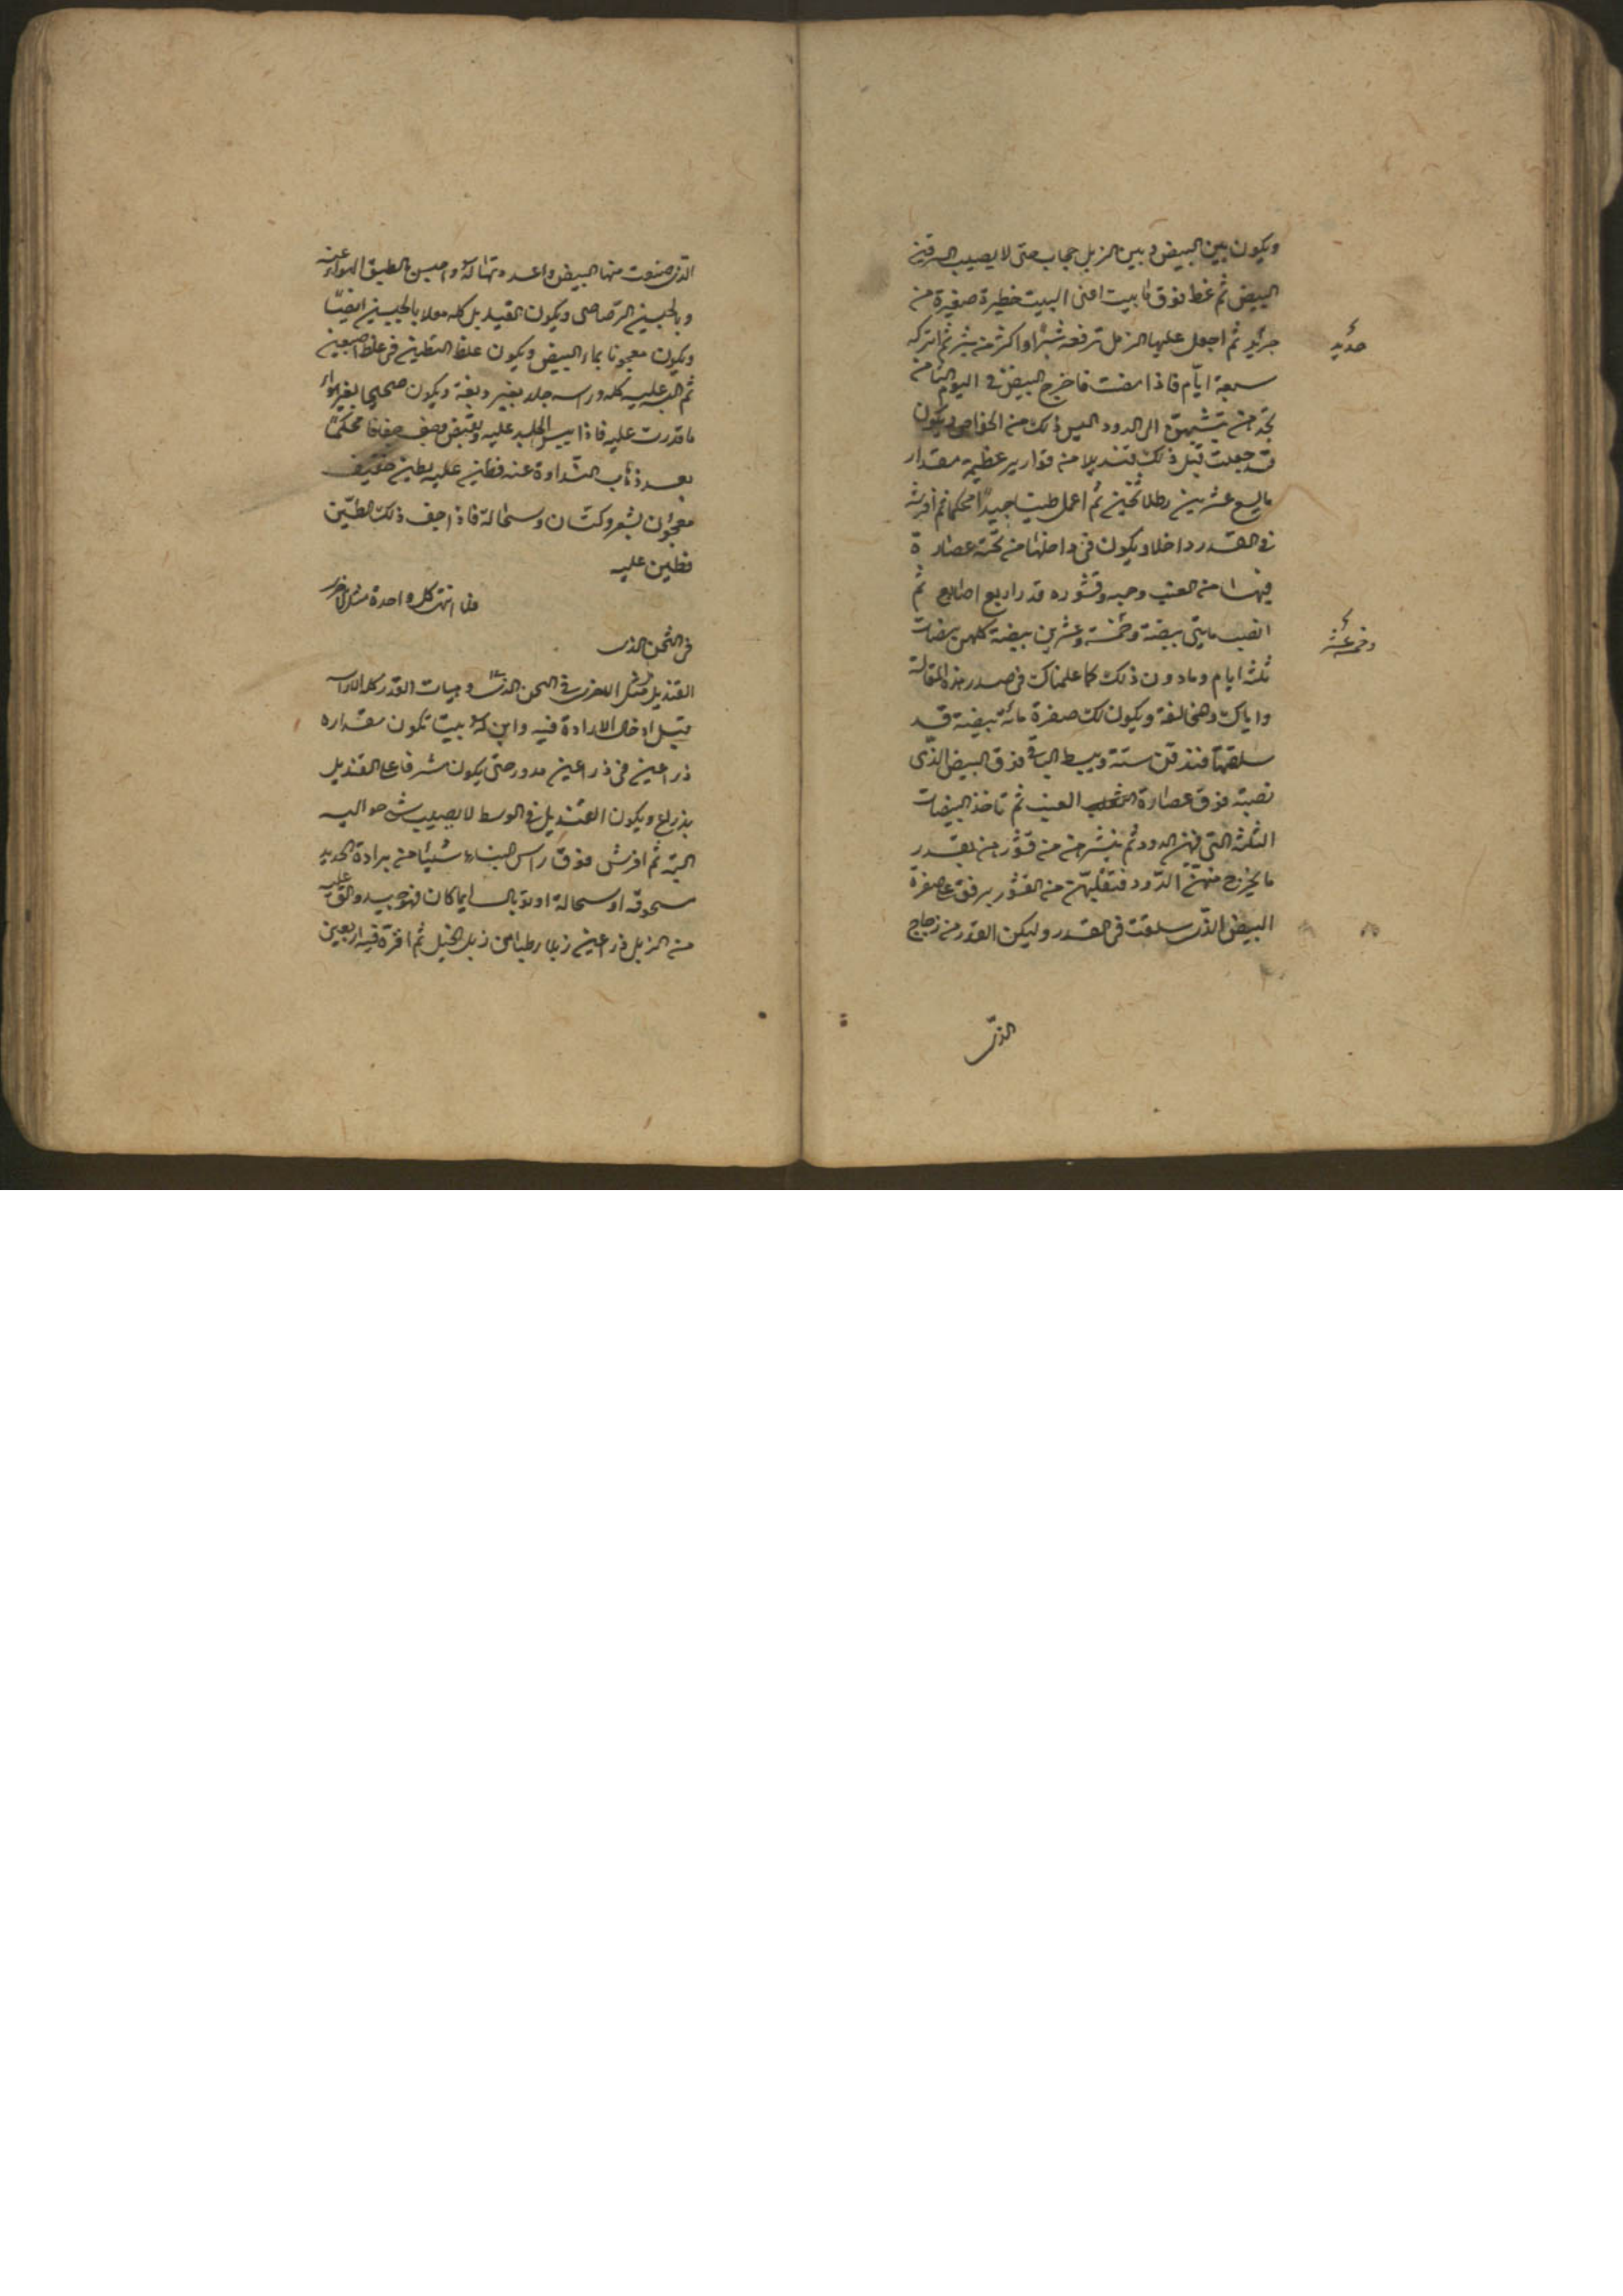 ويكون بين البيض وبين الزبل حجاب حتى لا يصيب السرقين
البيض ثم غط فوق ما بيت اعنى البيت خطيرة صغيرة من
جرئد ثم اجعل عليها الزبل ترفعه شبرا او اكثر من شبر ثم اتركه
حدئد
سبعة ايام فاذا مضت فاخرج البيض في اليوم الثامن
الى الدود اليس ذلك من الخواص ويكون
قد جعلت قبل ذلك قنديلا من قوارير عظيمة مقدار
ما يسع عشرين رطلا ثخين ثم اعمل طينا جيدا محكما ثم افرشه
في القدر داخلا ويكون في داخلها من تحته عصارة
فيها من العنب وحبه وقشوره قدر اربع اصابع ثم
انصب مايتى بيضة وخمسة وعشرين بيضة كلهن بيضات
وخمسة عشر
ثلثة ايام وما دون ذلك كما علمناك في صدر هذه المقالة
واياك والمخالفة ويكون لك صفرة مائة بيضة قد
سلقتها ويبسط الباقى فوق البيض الذى
نصبته فوق عصارة العنب ثم تاخذ البيضات
الثلثة التى فيهن الدود ثم من قشورهن بقدر
ما يخرج منهن الدود فتقلبهن من القشور برفق على صفرة
البيض الذى سلقت في القدر وليكن القدر من زجاج
الذى
الذى صنعت منها البيض واعد واحسن الهواء عنه
وبالجبسين الرصاصى ويكون القنديل كله بالجبسين ايضا
ويكون معجونا بماء البيض ويكون غلظ التطين في غلظ اصبعين
ثم البد عليه كله وراسه جلد بغير دبغة ويكون صحيحا بغير
ما قدرت عليه فاذا يبس الجلد عليه وجف جفافا محكما
بعد ذهاب النداوة عنه فطين عليه بطين خفيف
معجون بشعر وكتان وسحالة فاذا جف ذلك الطين
فطين عليه
كل واحدة مثل الاخرى
في الثخن الذى
القنديل مثل في الثخن وهيات القدر كما
قبل ادخال الارادة فيه وابن له بيت تكون مقداره
ذراعين في ذراعين مدور حتى يكون مشرفا على القنديل
بذراع ويكون القنديل في الوسط لا يصيب شى حواليه
البتة ثم افرش فوق راس البناء شيئا من برادة الحديد
مسحوقة او سحالة او توبال ايما كان فهو جيد والق عليه
من الزبل ذراعين زبلا رطبا من زبل الخيل ثم اقره فيه اربعين